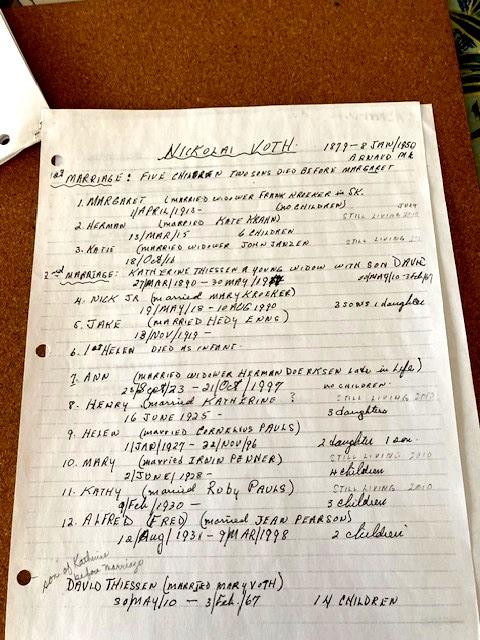 NICKOLAI VOTH. 1879 - 8 JAN/1950
ARNAUD MB
1st MARRIAGE: FIVE CHILDREN TWO SONS DIED BEFORE MARGARET
1. MARGARET (MARRIED WIDOWER FRANK KROEKER in SK.
1/APRIL/1913 - (NO CHILDREN) JULY
2. HERMAN (MARRIED KATE KRAHN) STILL LIVING 2010
13/MAR/15 6 CHILDREN
3. KATIE (MARRIED WIDOWER JOHN JANZEN STILL LIVING
18/Oct/16
2nd MARRIAGE: KATHERINE THIESSEN A YOUNG WIDOW WITH SON DAVID
27/MAR/1890 - 30 MAY/ 30/MAY/10 - 3 Feb/67
4. NICK JR (married MARY KROEKER)
19/MAY/18 - 10 AUG 1990 3 SONS 1 daughter
5. JAKE (MARRIED HEDY ENNS)
13/NOV/1919 -
6. 1st HELEN DIED AS INFANT.
7. ANN (MARRIED WIDOWER HERMAN DOERKSEN Late in Life)
23/Sept/23 - 21/Oct/1997 no CHILDREN.
8. HENRY (married KATHERINE ? STILL LIVING 2010
16 JUNE 1925 - 3 daughters
9. HELEN (married CORNELIUS PAULS)
1/JAN/1927 - 22/NOV/96 2 daughters 1 son.
10. MARY (married IRWIN PENNER) STILL LIVING 2010
2/JUNE/1928 - 4 children
11. KATHY (married RUBY PAULS) STILL LIVING 2010
9/Feb/1930 - 3 children
12. ALFRED (FRED) (married JEAN PEARSON)
12/Aug/1931 - 9/MAR/1998 2 children
son of Katherine
before marriage
DAVID THIESSEN (MARRIED MARY VOTH)
30/MAY/10 - 3/Feb./67 14 CHILDREN